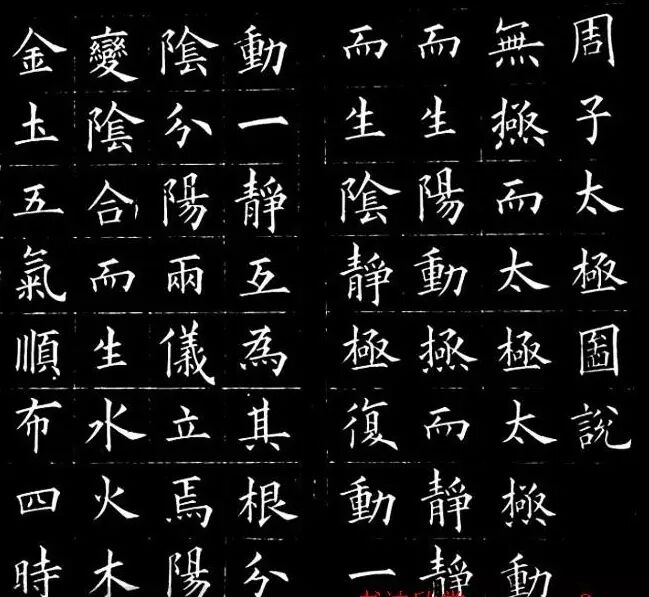 周子太極圖說
無極而太極太極動
而生陽動極而靜靜
而生陰靜極復動一
動一靜互為其根分
陰分陽兩儀立焉陽
變陰合而生水火木
金土五氣順布四時